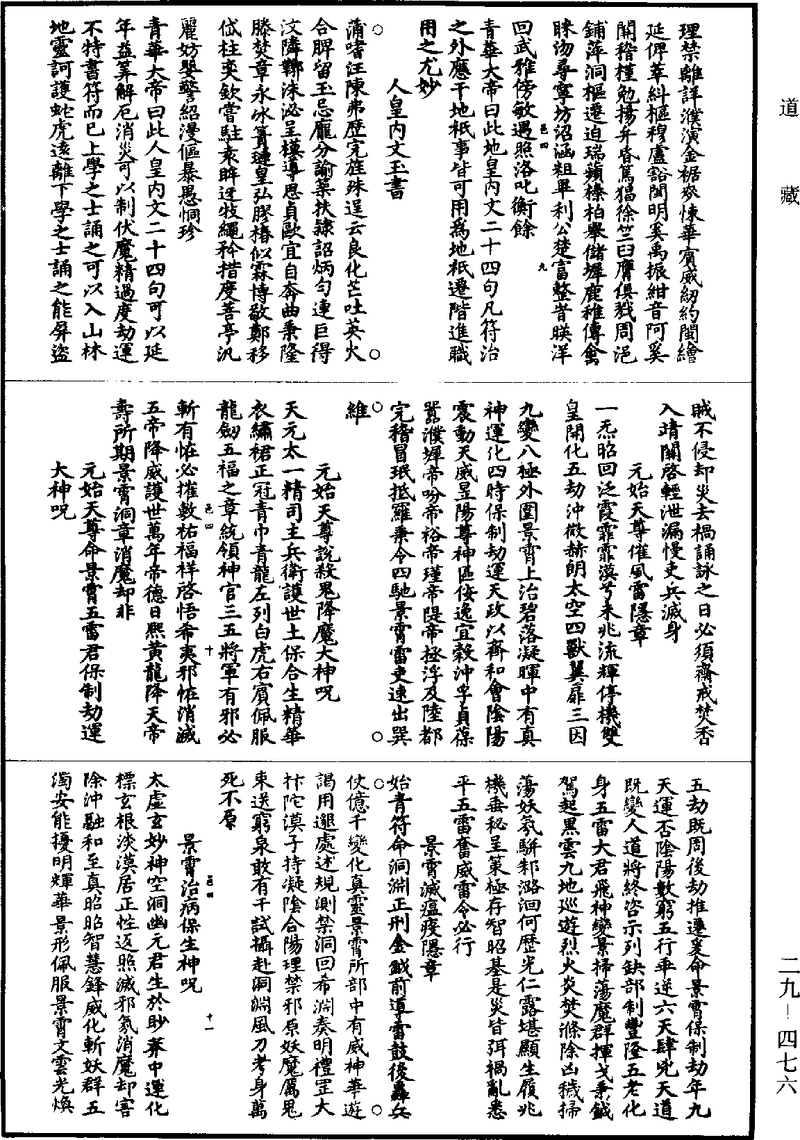 道藏
理禁離詳濮演金裾麥悚華賓威紉約閩繪
延俾萃糾樞穆盧豁閩明奚禹振紺音阿奚
閞稽槿勉揚弁昏篤猖徐竺臼膺俱戮周浥
鋪萍洞樞遷迫瑞蘋榛柏舉儲墀鹿稚傳禽
睞沕尋寧坊沼涵粗畢利公楚富整普朠洋
回武雅傍敏遇照洛叱衡餘
青華大帝曰此地皇內文二十四句凡符治
之外應干地祇事皆可用為地祇遷階進職
用之尤妙
人皇內文玉書
蒲嗜汪陳弗歷完旌殊逞云良化芒吐英火
合脾留玉忌龐分諭菜扶隸詔炳句連巨得
汶隣鄴洙泌呈模導恩貞歐宜自奔曲秉隆
滕焚章永冰箐璉皇弘膠椿似霖博敬鄭移
岱柱奕欽嘗駐袁眸逕牧繩矜措度菩亭汎
麗妨嬰警紹漫傴暴愚恫珍
青華大帝曰此人皇內文二十四句可以延
年益筭解厄消災可以制伏魔精過度劫運
不特書符而已上學之士誦之可以入山林
地靈訶護蛇虎遠離下學之士誦之能屏盜
賊不侵却災去禍誦詠之日必須齋戒焚香
入靖闔啓輕泄漏慢吏兵滅身
元始天尊催風雷隱章
一炁昭回泛霞霏霏漠兮未兆流輝停機雙
皇開化五劫沖微赫朗太空四獸翼扉三因
九變八極外圍景霄上治碧落凝暉中有真
神運化四時保制劫運天政以齊和會陰陽
震動天威昱陽尊神區倿逸宜穀沖孚貞葆
嚣濮墠帝吩帝裕帝瑾帝隄帝極浮及陸都
完稽冒珉抵羅秉令四馳景霄雷吏速出巽
維
元始天尊說殺鬼降魔大神呪
天元太一精司主兵衛護世土保合生精華
衣繡裙正冠青巾青龍左列白虎右賓佩服
龍劒五福之章統領神官三五將軍有邪必
斬有恠必摧敷祐福祥啓悟希夷邪恠消滅
五帝降威護世萬年帝德日熙黃龍降天帝
壽所期景霄洞章消魔却非
元始天尊命景霄五雷君保制劫運
大神呪
五劫既周後劫推遷爰命景霄保制劫年九
天運否陰陽數窮五行乖逆六天肆兇天道
既變人道將終咨示列缺部制豐隆五老化
身五雷大君飛神變景掃蕩魔群揮戈秉鉞
駕起黑雲九地巡遊烈火炎焚滌除凶穢掃
蕩妖氛騈邾潞洄何歷光仁露堪顯生履兆
機垂秘呈策極存智昭基是災皆弭禍亂悉
平五雷奮威雷令必行
景霄滅瘟疫隱章
始青符命洞淵正刑金鉞前導雷鼓後轟兵
仗億千變化真靈景霄所部中有威神華遊
謁用邋處述規測禁洞回希淵奏明禮罡大
抃陀漠子持凝陰合陽理禁邪原妖魔厲鬼
束送窮泉敢有干試攝赴洞淵風刀考身萬
死不原
景霄治病保生神呪
太虛玄妙神空洞幽元君生於眇莽中運化
標玄根淡漠居正性返照滅邪氛消魔却害
除沖融和至真昭昭智慧鋒威化斬妖群五
濁安能擾明輝華景形佩服景霄文雲光煥
二九-四七六